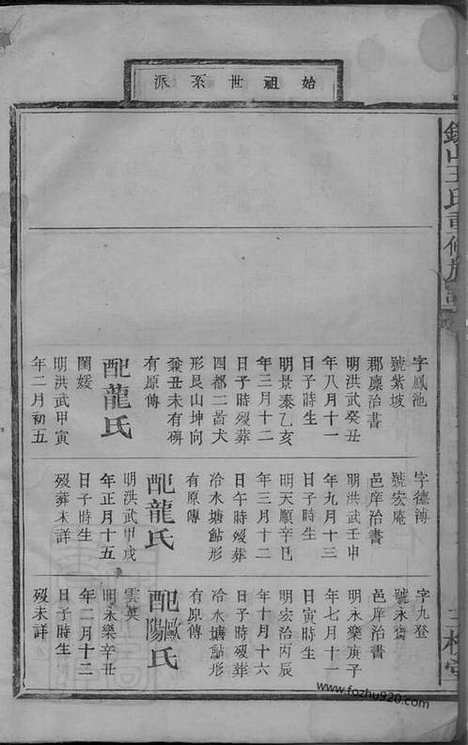 始祖世系派
王氏重修族譜
字鳳池
號紫坡
郡廩治書
明洪武癸丑
年八月十一
日子時生
明景泰乙亥
年三月十二
日子時歿葬
四都二啚犬
形艮山坤向
兼丑未有碑
有原傳
配龍氏
閨媛
明洪武甲寅
年二月初五
字德溥
號宏庵
邑庠治書
明洪武壬申
年九月十三
日子時生
明天順辛巳
年三月十二
日午時歿葬
冷水塘鮎形
有原傳
配龍氏
明洪武甲戌
年正月十五
日子時生
歿葬未詳
字九登
號永齋
邑庠治書
明永樂庚子
年七月十一
日寅時生
明宏治丙辰
年十月十六
日子時歿葬
冷水塘鮎形
有原傳
配歐陽氏
雲英
明永樂辛丑
年二月十二
日子時生
歿未詳
三槐堂
www.fozhu920.com